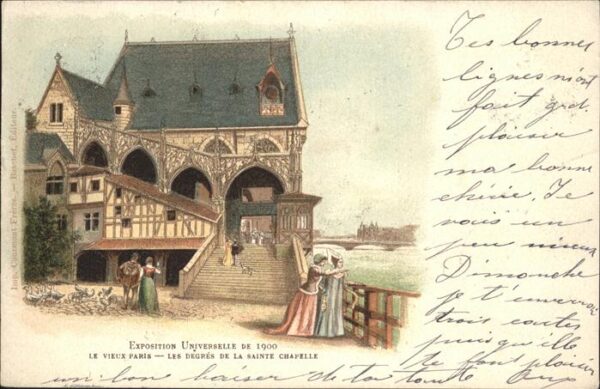 EXPOSITION UNIVERSELLE DE 1900
LE VIEUX PARIS — LES DEGRÉS DE LA SAINTE CHAPELLE
Tes bonnes
lignes m'ont
fait grd.
plaisir
ma bonne
chérie. Je
vais un
peu mieux
Dimanche
je t'enverrai
trois cartes
puisqu'elle
te font plaisir
un bon baiser de ta toute